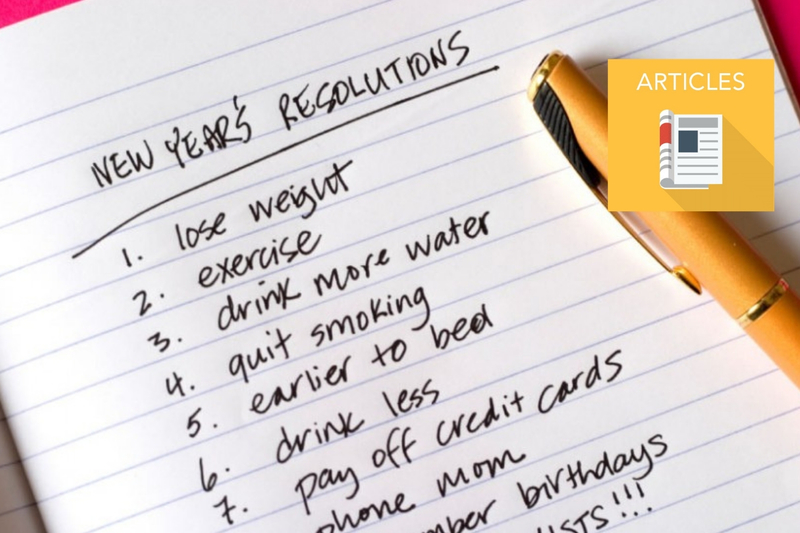 NEW YEAR'S RESOLUTIONS
1. lose weight
2. exercise
3. drink more water
4. quit smoking
5. earlier to bed
6. drink less
7. pay off credit cards
phone mom
birthdays
!!!
ARTICLES